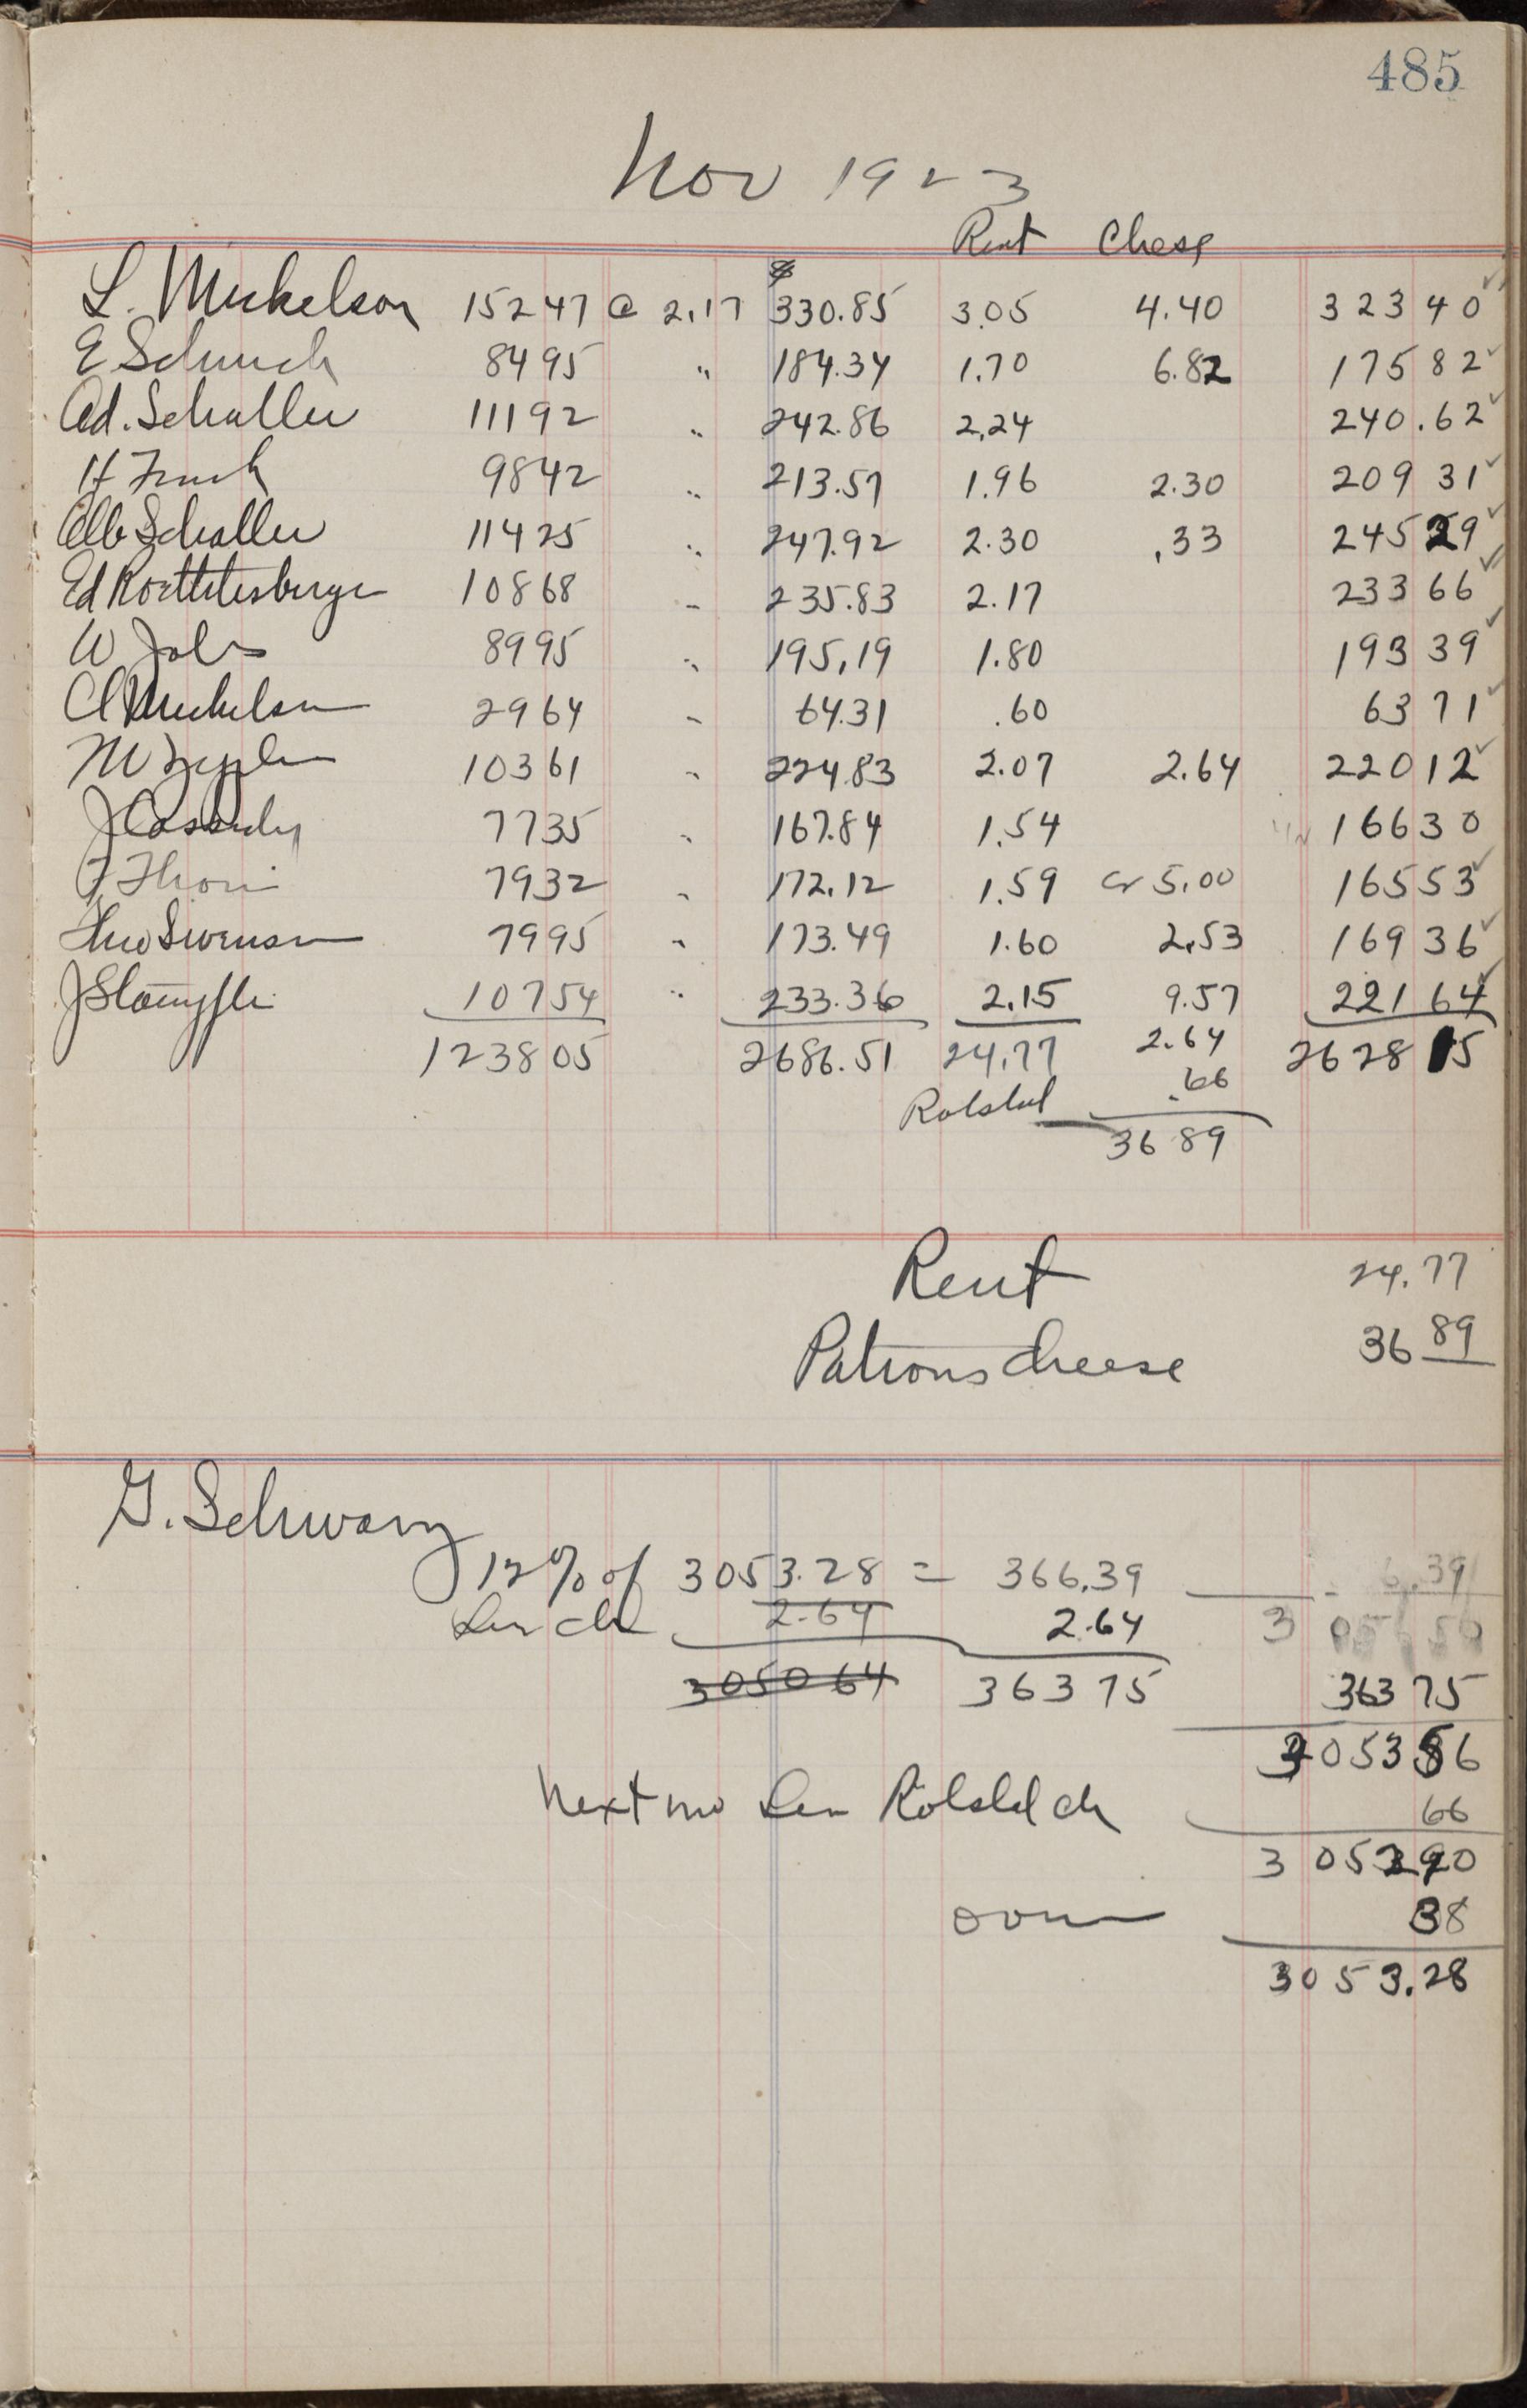 485
Nov 1923
Rent Chese
L. Mickelson 15247 @ 2.17 $ 330.85 3.05 4.40 323 40 ✓
E Schuch 8495 " 184.34 1.70 6.82 175 82 ✓
Ad. Schaller 11192 " 242.86 2.24 240.62 ✓
H 9842 " 213.57 1.96 2.30 209 31 ✓
Alb Schaller 11425 " 247.92 2.30 .33 245 29 ✓
Ed Roethlesberger 10868 " 235.83 2.17 233 66 ✓
W 8995 " 195.19 1.80 193 39 ✓
Cl Mickelson 2964 " 64.31 .60 63 71 ✓
M 10361 " 224.83 2.07 2.64 220 12 ✓
J Cassidy 7735 " 167.84 1.54 166 30
F Thoni 7932 " 172.12 1.59 Cr 5.00 165 53 ✓
Theo Swenson 7995 " 173.49 1.60 2.53 169 36 ✓
J Stampfli 10754 " 233.36 2.15 9.57 221 64 ✓
123805 2686.51 24.77 2.64 2628 15
.66
36 89
Rent 24.77
Patrons cheese 36 89
G. Schwarz
12% of 3053.28 = 366.39
2.64 2.64
3050 64 363 75 363 75
3053 56
Next mo 66
3052 90
38
3053.28